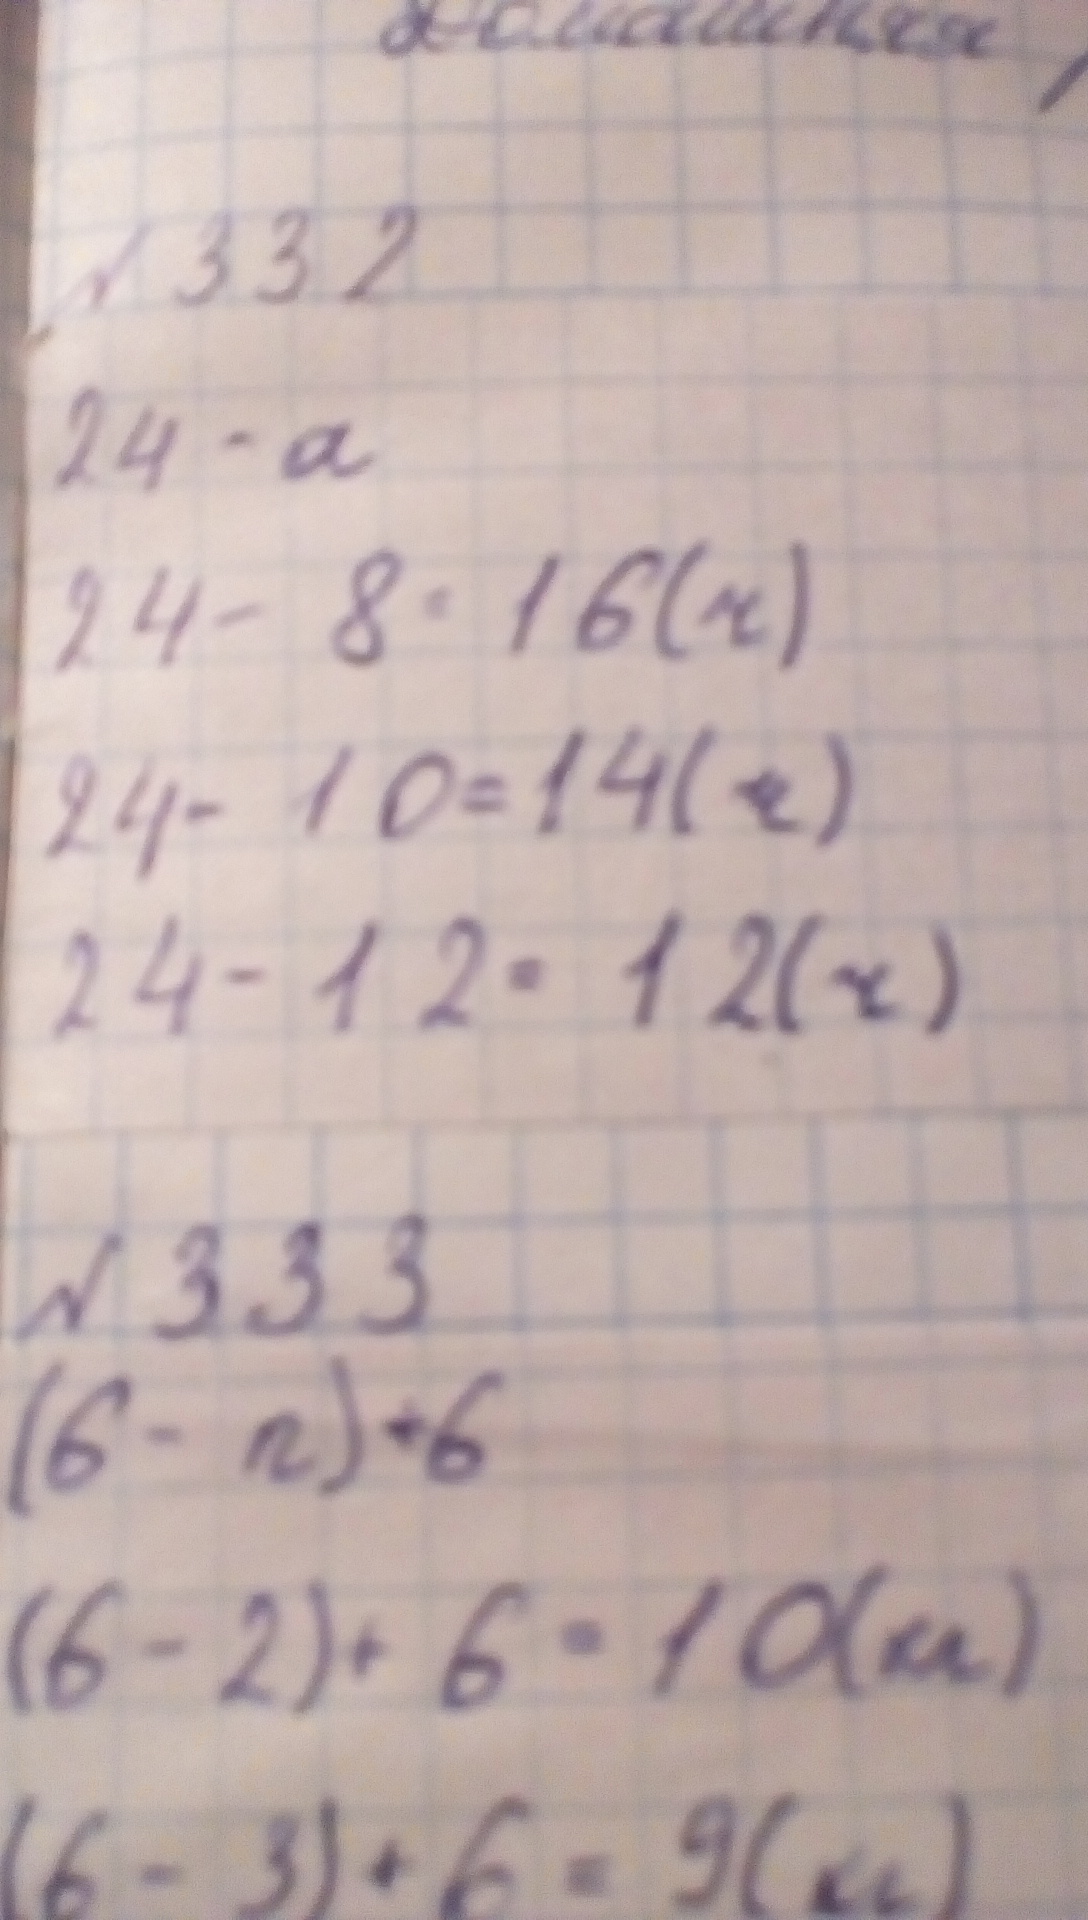 Домашняя
№ 332
24 - а
24 - 8 = 16(ч)
24 - 10 = 14(ч)
24 - 12 = 12(ч)
№ 333
(6 - n) + 6
(6 - 2) + 6 = 10(м)
(6 - 3) + 6 = 9(м)